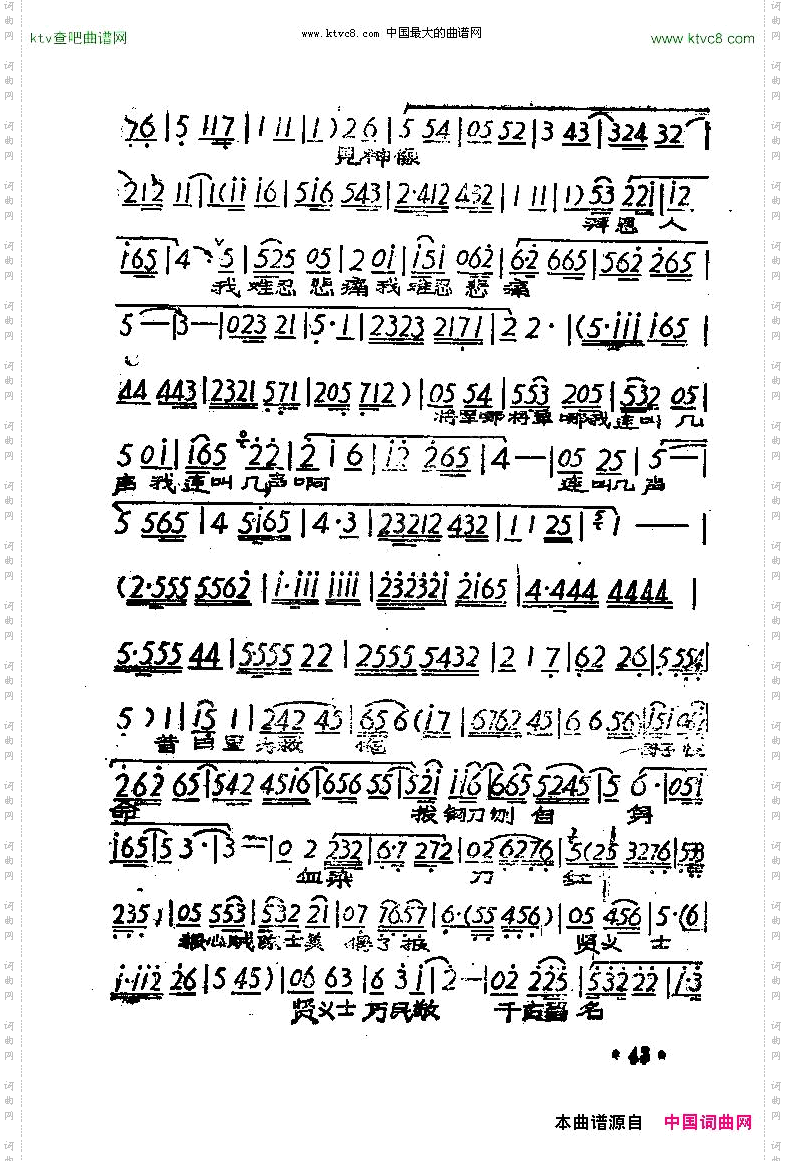 www.ktvc8.com 中国最大的曲谱网
ktv查吧曲谱网
www.ktvc8.com
76 | 5 117 | 1 11 | 1) 26 | 5 54 | 05 52 | 3 43 | 324 32 |
見神像
212 11 | 1(11 16 | 516 543 | 2·412 432 | 1 11 | 1) 53 221 | 12
拜恩人
165 | 4 5 | 525 05 | 2 01 | 151 062 | 6·2 665 | 562 265 |
我难忍悲痛我难忍悲痛
5 — | 3 — | 023 21 | 5·1 | 2323 2171 | 2 2· | (5·111 165 |
44 443 | 2321 571 | 205 712) | 05 54 | 553 205 | 532 05 |
将军哪将军哪我连叫几
5 01 | 165 22 | 2 1 6 | 12 265 | 4 — | 05 25 | 5 —
声我连叫几声啊 连叫几声
5 565 | 4 5·165 | 4·3 | 23212 432 | 1 1 25 | 1 — — |
(2·555 5562 | 1·111 1111 | 232321 2165 | 4·444 4444 |
5·555 44 | 5555 22 | 2555 5432 | 2 1 7 | 62 26 | 5 555
5) 1 | 15 1 | 242 45 | 656 (17 | 6762 45 | 6 6 56 | 151
昔日里 救
262 65 | 542 4516 | 656 55 | 521 116 | 665 5245 | 5 6· | 051
命 拔钢刀刎自
165 | 5 3· | 3 — | 0 2 232 | 6·7 272 | 02 6276 | 5 (25 3276 | 5
血染 刀 红
235) | 05 553 | 532 21 | 07 7657 | 6·(55 456) | 05 456 | 5·(6
狠心贼陈士美 贤义士
1·112 26 | 5 45) | 06 63 | 6 3 1 | 2 — | 02 225 | 5322 22 | 1·3
贤义士万民敬 千古留名
·43·
本曲谱源自 中国词曲网
词曲网